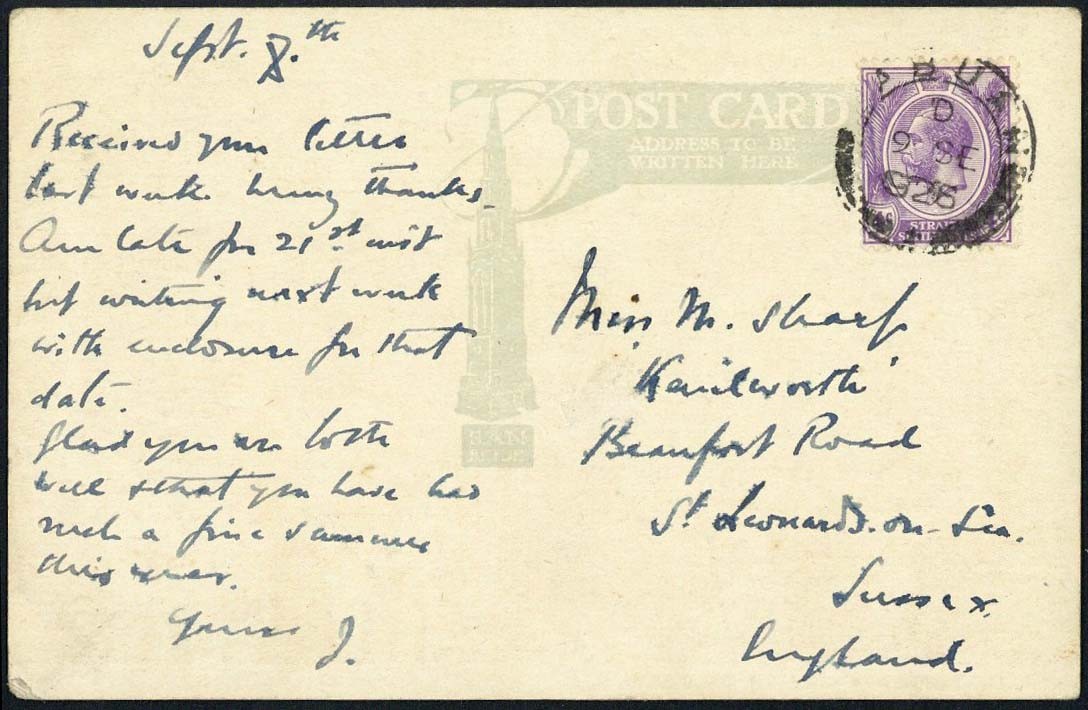 Sept. 8th
Received your letter
last week many thanks.
Am late for 21st inst
but writing next week
with enclosure for that
date.
Glad you are both
well & that you have had
such a fine summer
this year.
Yours J.
POST CARD
ADDRESS TO BE
WRITTEN HERE
LABUAN
D
9 SE
1926
STRAITS
SETTLEMENTS
Miss M. Sharp
"Kenilworth"
Beaufort Road
St Leonards-on-Sea.
Sussex
England.